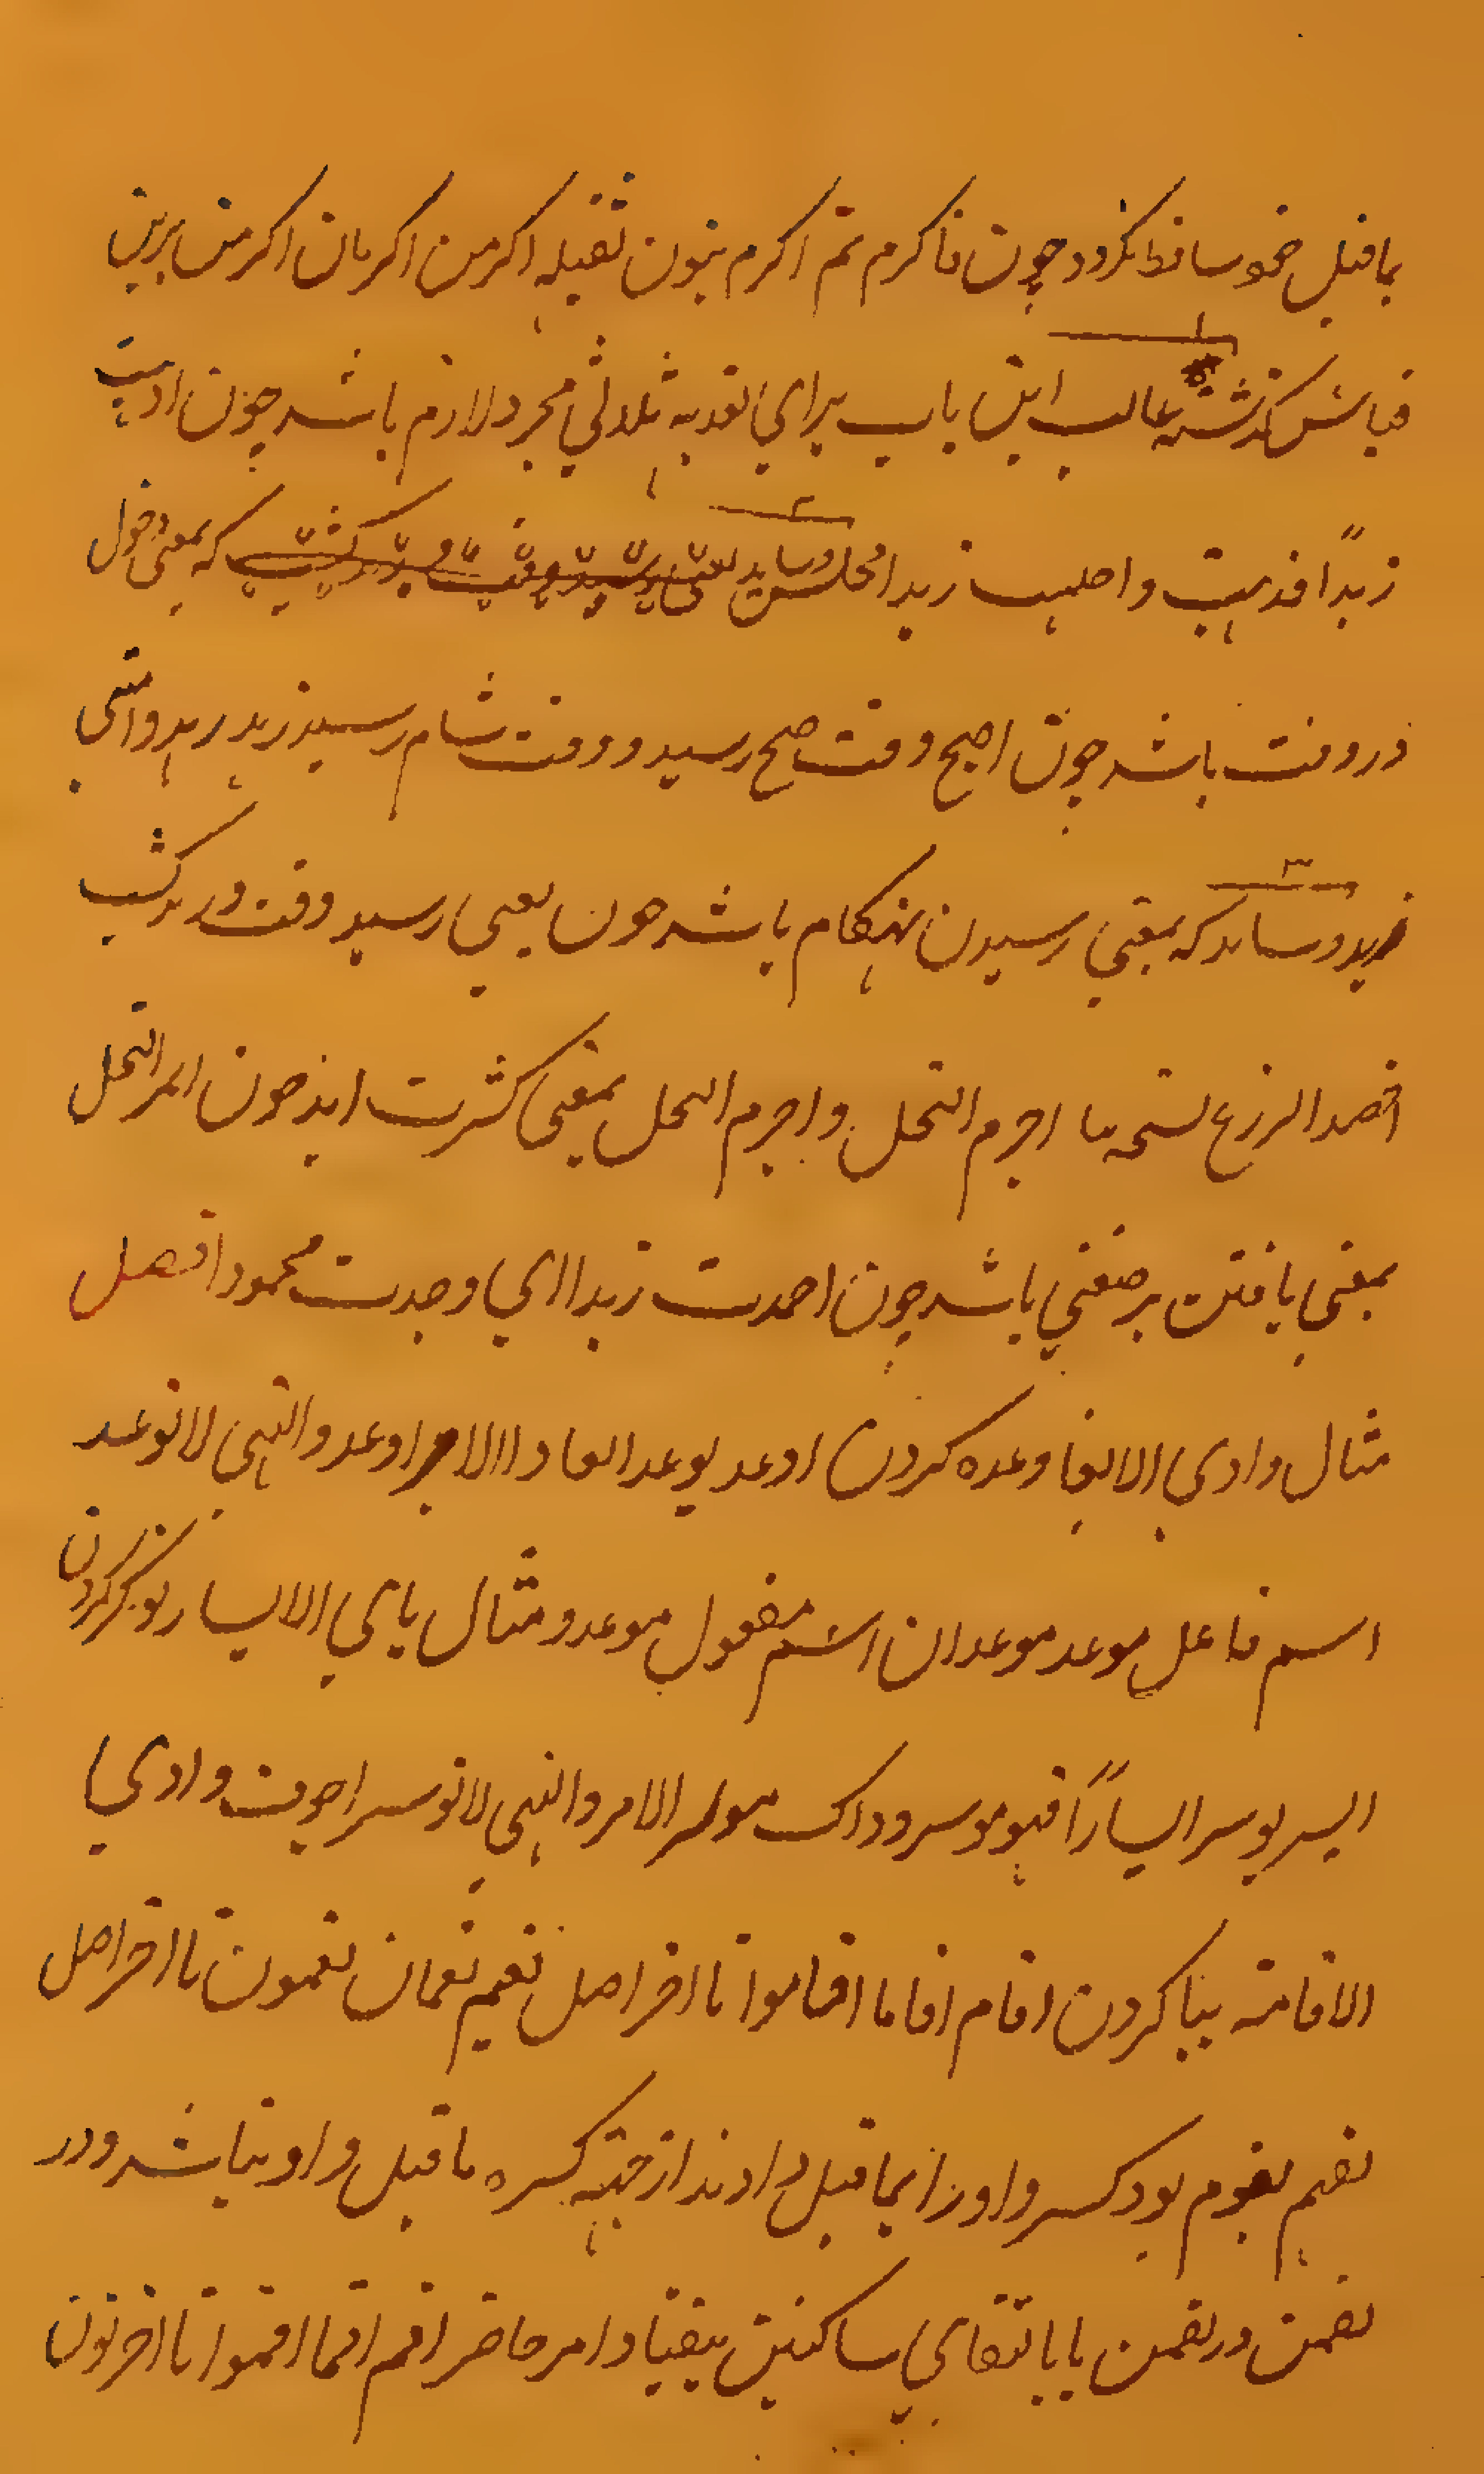 بماقبل خود ساقط نکردد چون فاکرم ثم اکرم بنون ثقیله اکرمن اکرمان اکرمن برین
قیاس کذشته غالب این باب برای تعدیه ثلاثی مجرد لازم باشد چون اذهبت
زیداً فذهب واجلست زیدا فجلس وشاید که بمعنی دخول
در وقت باشد چون اصبح وقت صبح رسید و وقت شام رسید زید وامسی
زید وشاید که بمعنی رسیدن هنکام باشد چون یعنی رسید وقت
احصد الزرع اجرم النحل و اجرم النحل بمعنی کثرت اید چون اثمر النحل
بمعنی یافتن بر صفتی باشد چون احمدت زیدا ای وجدت محمودا فصل
مثال وادی الایعاد وعده کردن اوعد یوعد ایعادا الامر اوعد والنهی لاتوعد
اسم فاعل موعد موعدان اسم مفعول موعد و مثال یایی الایسار توانکر کردن
ایسر یوسر ایساراً فهو موسر وذاک موسر الامر والنهی لاتوسر اجوف وادی
الاقامة بپا کردن اقام اقاما اقاموا تا اخر اصل یقیم یقیمان یقیمون تا اخر اصل
یقیم یقوم بود کسره واو را بماقبل دادند از جهة کسره ماقبل واو یا شد و در
یقمن و تقمن یا بالتقای ساکنین بیفتاد امر حاضر اقم اقیما اقیموا تا اخر بنون